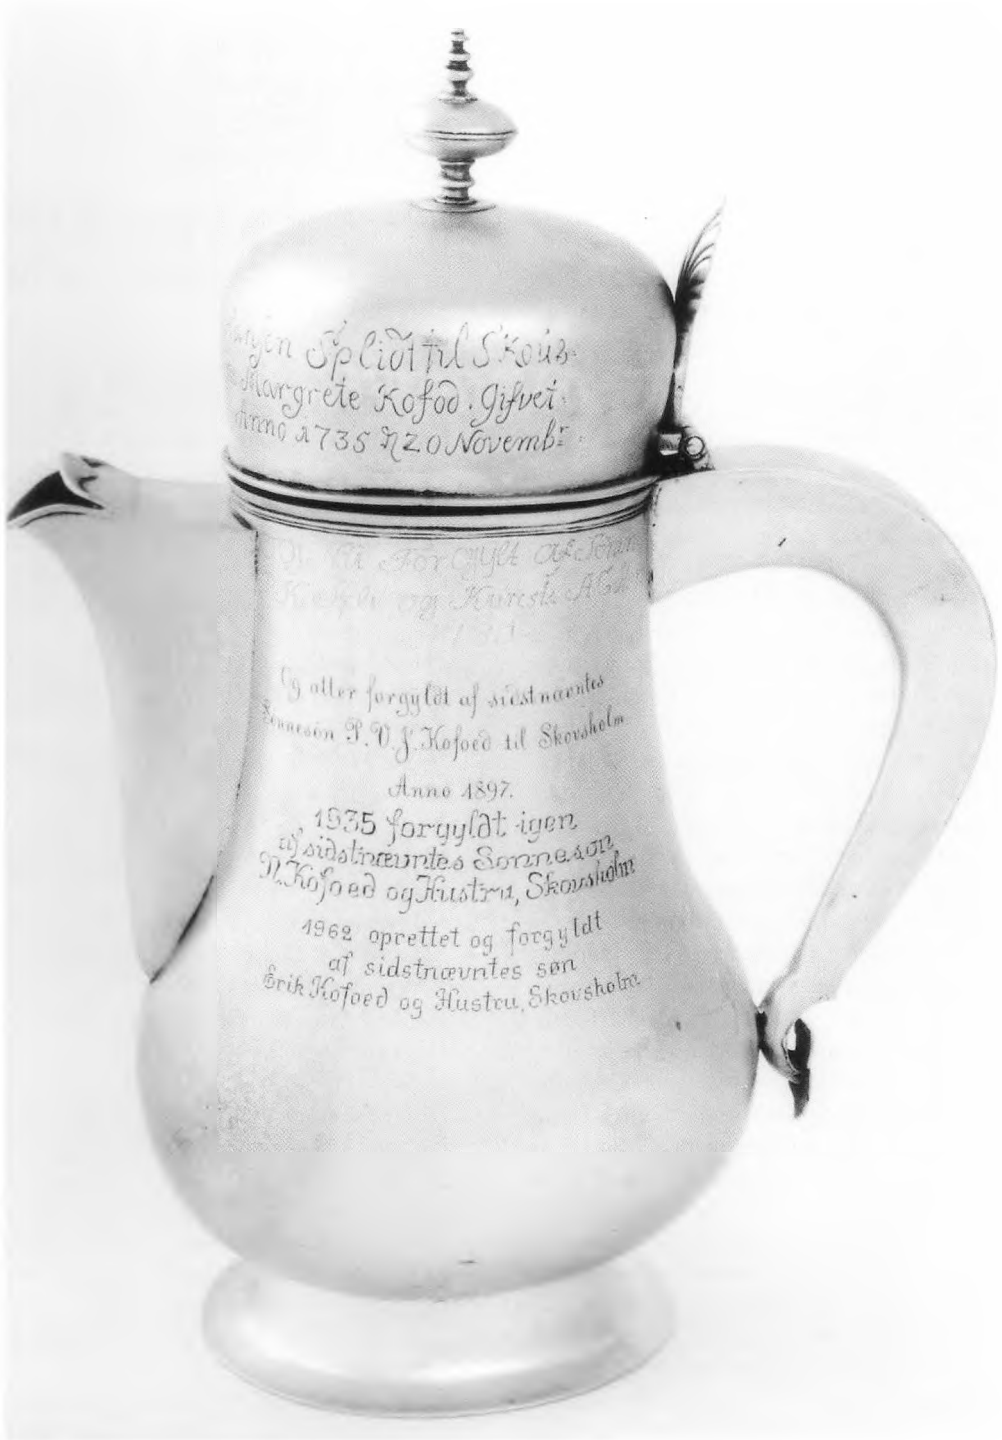 Splidt til Skous
Margrete Kofod. Gifvet
Anno 1735 D 20 Novembr
For Gÿlt Af
og
Og atter forgyldt af sidstnævntes
Sønnesøn P. V. J. Kofoed til Skovsholm
Anno 1897.
1935 forgyldt igen
af sidstnævntes Sønnesøn
N. Kofoed og Hustru, Skovsholm
1962 oprettet og forgyldt
af sidstnævntes søn
Erik Kofoed og Hustru, Skovsholm